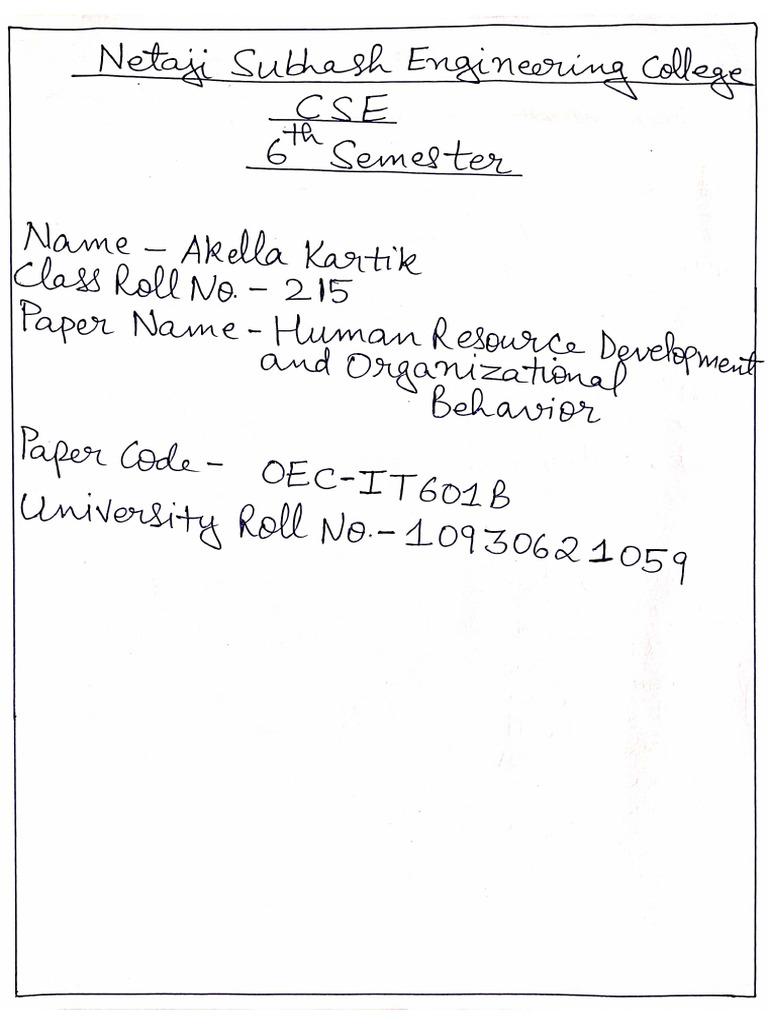 Netaji Subhash Engineering College
CSE
6th Semester
Name - Akella Kartik
Class Roll No. - 215
Paper Name - Human Resource Development
and Organizational
Behavior
Paper Code - OEC-IT601B
University Roll No. - 10930621059